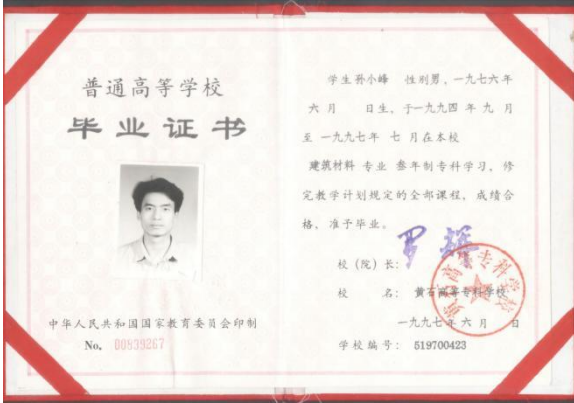 普通高等学校
毕业证书
中华人民共和国国家教育委员会印制
No. 00839267
学生孙小峰 性别男、一九七六年
六 月 日生、于一九九四 年 九 月
至 一九九七年 七 月在本校
建筑材料 专业 叁年制专科学习，修
完教学计划规定的全部课程，成绩合
格，准予毕业。
校（院）长：
校 名： 黄石高等专科学校
一九九七年 六 月 日
学校编号： 519700423